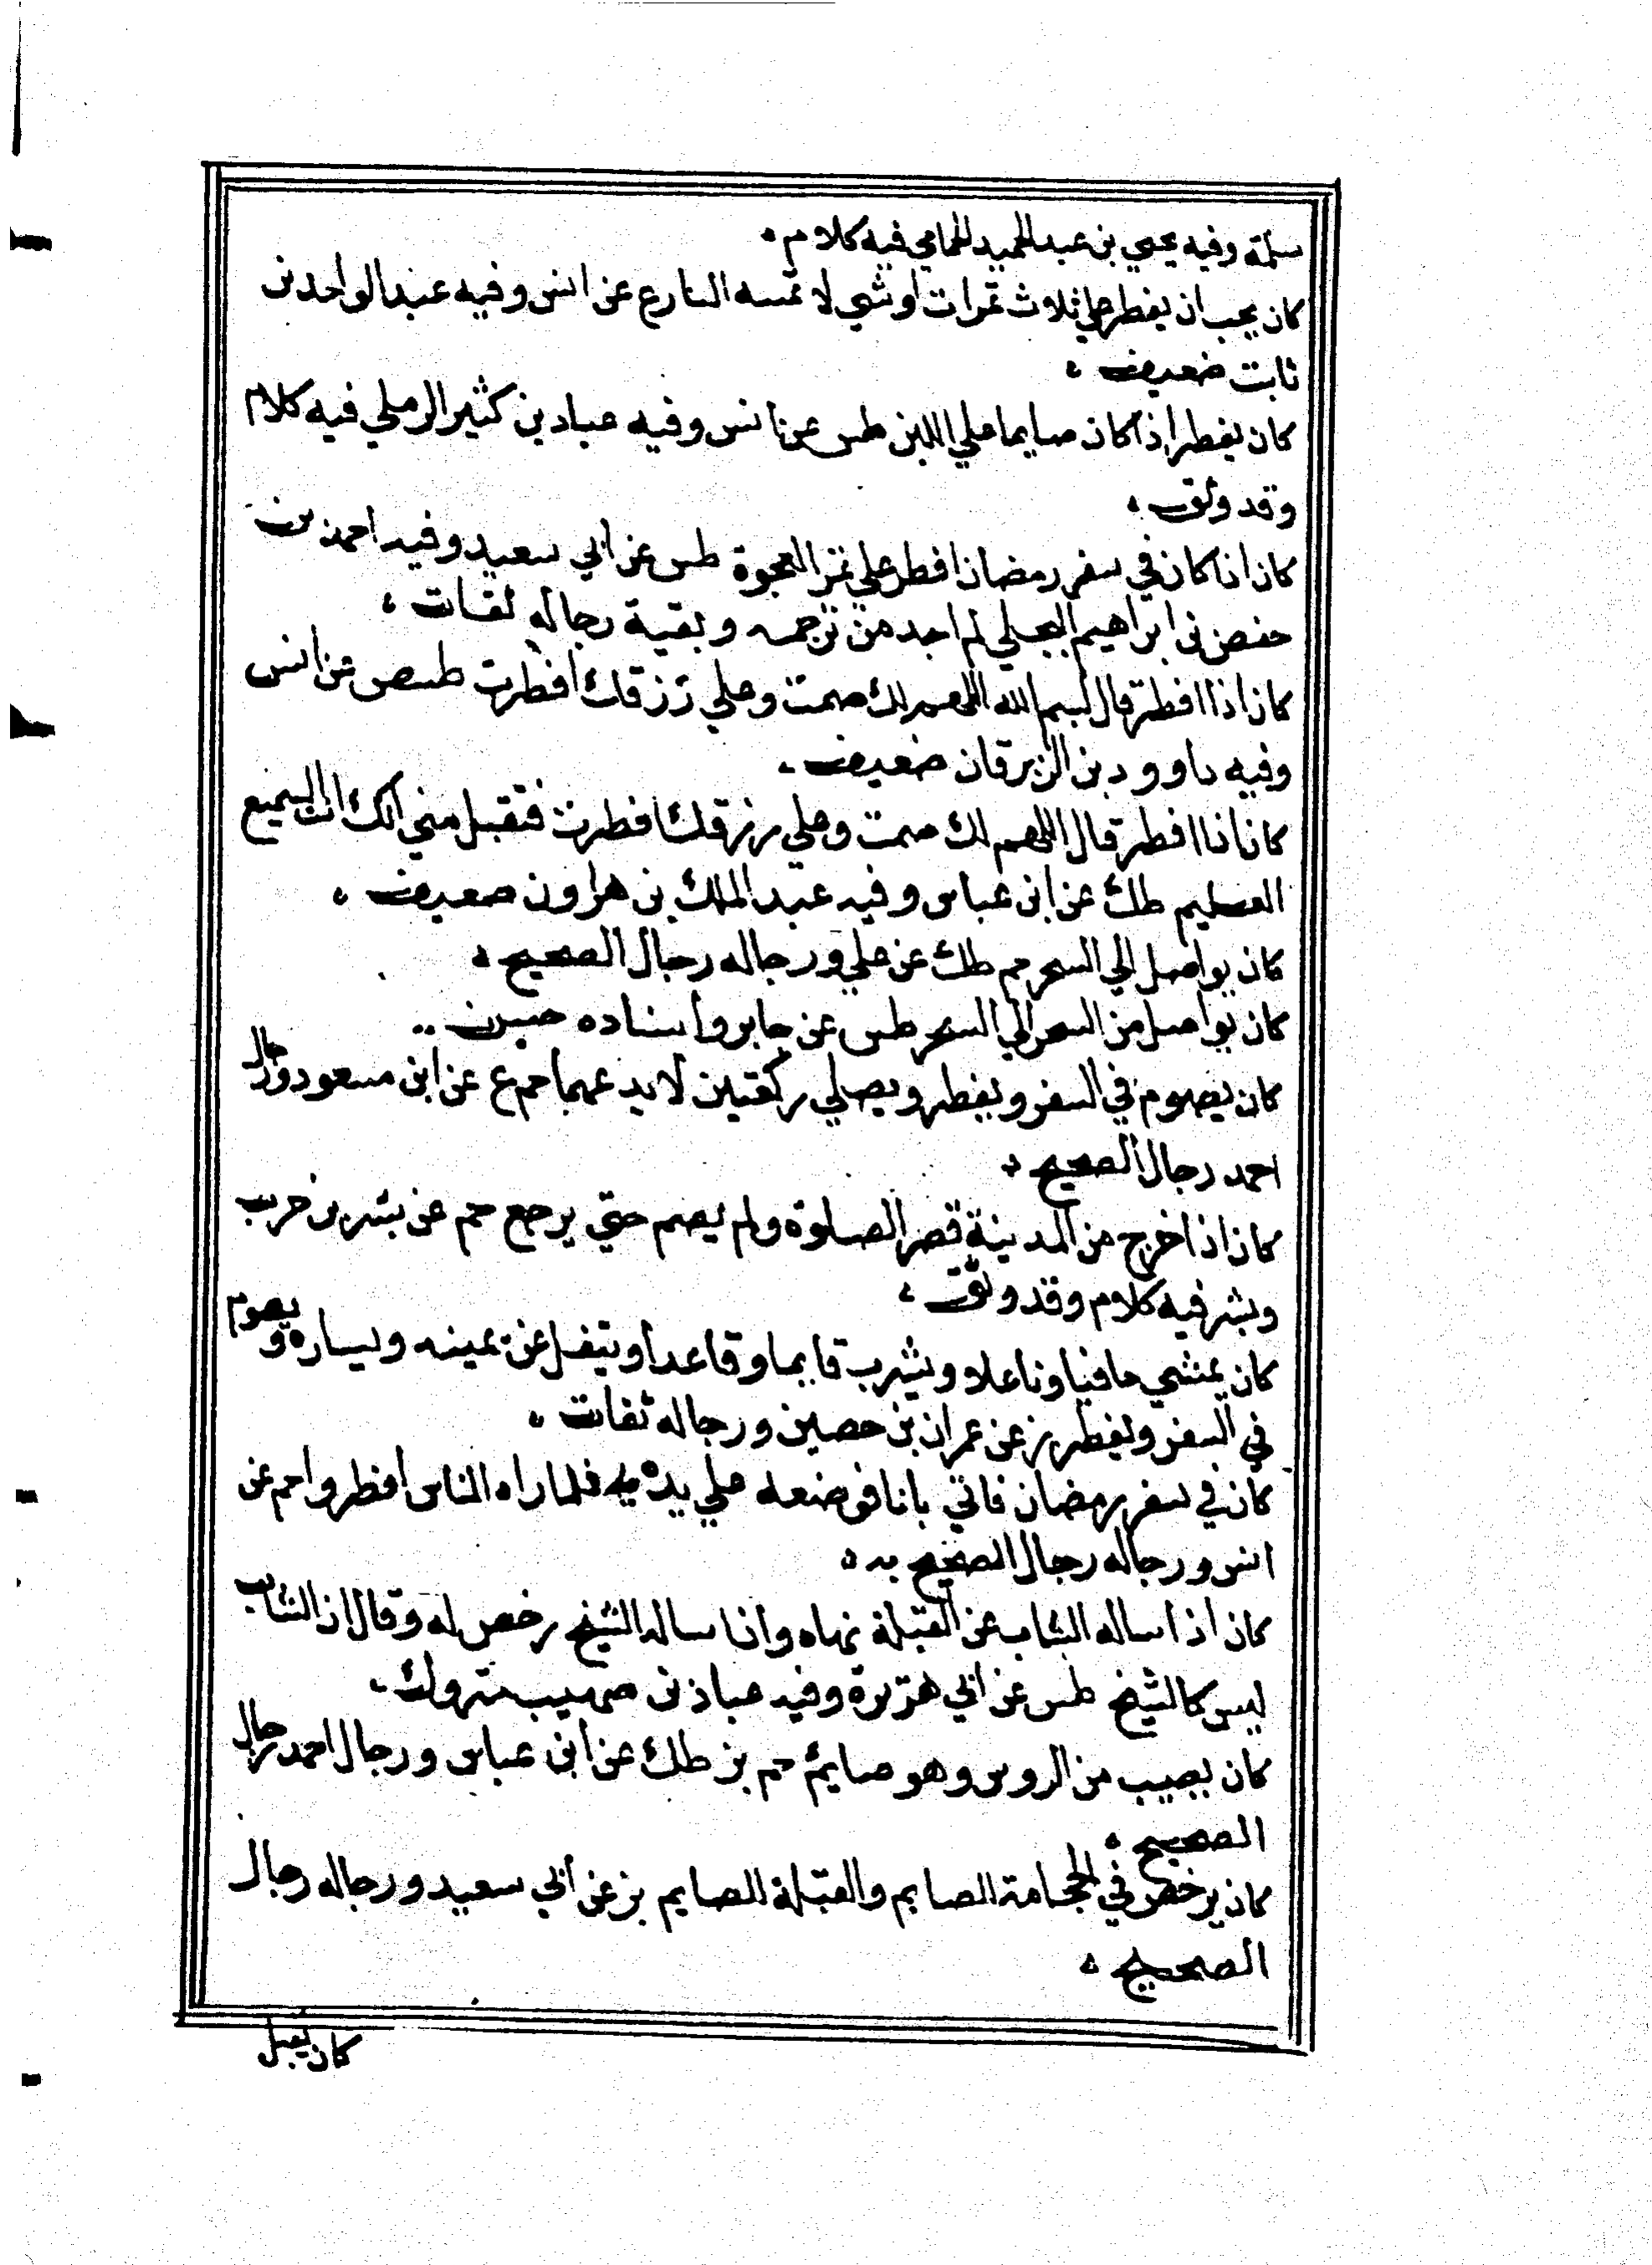 سلمة وفيه يحيي بن عبد الحميد الحماني فيه كلام
كان يحب ان يفطر علي ثلاث تمرات او شي لا تمسه النار ع عن انس وفيه عبد الواحد بن
ثابت ضعيف
كان يفطر اذا كان صايما علي اللبن طس عن انس وفيه عباد بن كثير الرملي فيه كلام
وقد وثق
كان اذا كان في سفر رمضان افطر علي تمر العجوة طس عن ابي سعيد وفيه احمد بن
حفص بن ابراهيم البجلي لم اجد من ترجمه وبقية رجاله ثقات
كان اذا افطر قال بسم الله اللهم لك صمت وعلي رزقك افطرت طسص عن انس
وفيه داوود بن الزبرقان ضعيف
كان اذا افطر قال اللهم لك صمت وعلي رزقك افطرت فتقبل مني انك انت السميع
العليم طك عن ابن عباس وفيه عبد الملك بن هرون ضعيف
كان يواصل الي السحر حم طك عن علي ورجاله رجال الصحيح
كان يواصل من السحر الي السحر طس عن جابر واسناده حسن
كان يصوم في السفر ويفطر ويصلي ركعتين لا يدعهما حم ع عن ابن مسعود ورجال
احمد رجال الصحيح
كان اذا خرج من المدينة قصر الصلوة ولم يصم حتي يرجع حم عن بشر بن حرب
وبشر فيه كلام وقد وثق
كان يمشي حافيا وناعلا ويشرب قايما وقاعدا ويتفل عن يمينه ويساره ويصوم
في السفر ويفطر بز عن عمران بن حصين ورجاله ثقات
كان في سفر رمضان فاتي بانا فوضعه علي يده فلما راه الناس افطروا حم عن
انس ورجاله رجال الصحيح
كان اذا ساله الشاب عن القبلة نهاه واذا ساله الشيخ رخص له وقال ان الشاب
ليس كالشيخ طس عن ابي هريرة وفيه عباد بن صهيب متروك
كان يصيب من الروس وهو صايم حم بز طك عن ابن عباس ورجال احمد رجال
الصحيح
كان يرخص في الحجامة للصايم والقبلة للصايم بز عن ابي سعيد ورجاله رجال
الصحيح
كان يقبل